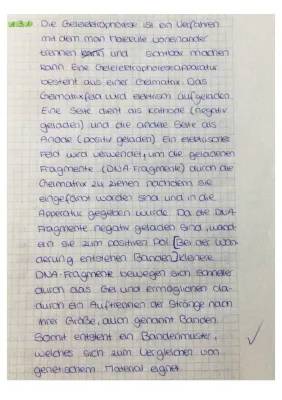 1.3.1 Die Gelelektrophorese ist ein Verfahren
mit dem man Moleküle voneinander
trennen kann und sichtbar machen
kann. Eine Gelelektrophoreseapparatur
besteht aus einer Gelmatrix. Das
Gelmatrixfeld wird elektrisch aufgeladen.
Eine Seite dient als Kathode (negativ
geladen) und die andere Seite als
Anode (positiv geladen) Ein elektrisches
Feld wird verwendet, um die geladenen
Fragmente (DNA-Fragmente) durch die
Gelmatrix zu ziehen nachdem sie
eingefärbt worden sind und in die
Apparatur gegeben wurde. Da die DNA-
Fragmente negativ geladen sind, wand-
ern sie zum positiven Pol. [Bei der Wan-
derung entstehen Banden] kleinere
DNA-Fragmente bewegen sich schneller
durch das Gel und ermöglichen da-
durch ein Auftrennen der Stränge nach
ihrer Größe, auch genannt Banden.
Somit entsteht ein Bandenmuster,
welches sich zum Vergleichen von
genetischem Material eignet.